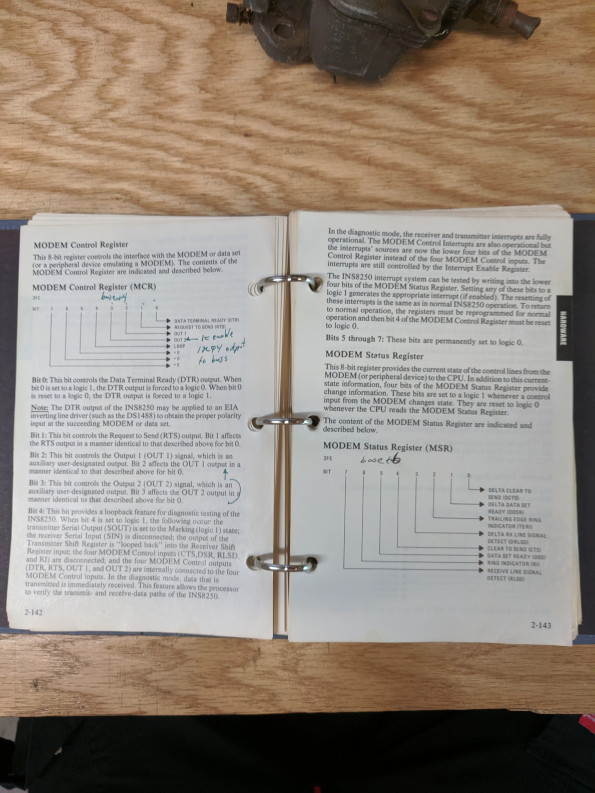 MODEM Control Register
This 8-bit register controls the interface with the MODEM or data set
(or a peripheral device emulating a MODEM). The contents of the
MODEM Control Register are indicated and described below.
MODEM Control Register (MCR)
3FC
base+4
BIT 7 6 5 4 3 2 1 0
DATA TERMINAL READY (DTR)
REQUEST TO SEND (RTS)
OUT 1
OUT 2
LOOP
= 0
= 0
= 0
1 = enable
IRQ4 output
to buss
Bit 0: This bit controls the Data Terminal Ready (DTR) output. When
bit 0 is set to a logic 1, the DTR output is forced to a logic 0. When bit 0
is reset to a logic 0, the DTR output is forced to a logic 1.
Note: The DTR output of the INS8250 may be applied to an EIA
inverting line driver (such as the DS1488) to obtain the proper polarity
input at the succeeding MODEM or data set.
Bit 1: This bit controls the Request to Send (RTS) output. Bit 1 affects
the RTS output in a manner identical to that described above for bit 0.
Bit 2: This bit controls the Output 1 (OUT 1) signal, which is an
auxiliary user-designated output. Bit 2 affects the OUT 1 output in a
manner identical to that described above for bit 0.
Bit 3: This bit controls the Output 2 (OUT 2) signal, which is an
auxiliary user-designated output. Bit 3 affects the OUT 2 output in a
manner identical to that described above for bit 0.
Bit 4: This bit provides a loopback feature for diagnostic testing of the
INS8250. When bit 4 is set to logic 1, the following occur: the
transmitter Serial Output (SOUT) is set to the Marking (logic 1) state;
the receiver Serial Input (SIN) is disconnected; the output of the
Transmitter Shift Register is "looped back" into the Receiver Shift
Register input; the four MODEM Control inputs (CTS, DSR, RLSD,
and RI) are disconnected; and the four MODEM Control outputs
(DTR, RTS, OUT 1, and OUT 2) are internally connected to the four
MODEM Control inputs. In the diagnostic mode, data that is
transmitted is immediately received. This feature allows the processor
to verify the transmit- and receive-data paths of the INS8250.
2-142
In the diagnostic mode, the receiver and transmitter interrupts are fully
operational. The MODEM Control Interrupts are also operational but
the interrupts' sources are now the lower four bits of the MODEM
Control Register instead of the four MODEM Control inputs. The
interrupts are still controlled by the Interrupt Enable Register.
The INS8250 interrupt system can be tested by writing into the lower
four bits of the MODEM Status Register. Setting any of these bits to a
logic 1 generates the appropriate interrupt (if enabled). The resetting of
these interrupts is the same as in normal INS8250 operation. To return
to normal operation, the registers must be reprogrammed for normal
operation and then bit 4 of the MODEM Control Register must be reset
to logic 0.
Bits 5 through 7: These bits are permanently set to logic 0.
MODEM Status Register
This 8-bit register provides the current state of the control lines from the
MODEM (or peripheral device) to the CPU. In addition to this current-
state information, four bits of the MODEM Status Register provide
change information. These bits are set to a logic 1 whenever a control
input from the MODEM changes state. They are reset to logic 0
whenever the CPU reads the MODEM Status Register.
The content of the MODEM Status Register are indicated and
described below.
MODEM Status Register (MSR)
3FE
BIT 7 6 5 4 3 2 1 0
DELTA CLEAR TO
SEND (DCTS)
DELTA DATA SET
READY (DDSR)
TRAILING EDGE RING
INDICATOR (TERI)
DELTA RX LINE SIGNAL
DETECT (DRLSD)
CLEAR TO SEND (CTS)
DATA SET READY (DSR)
RING INDICATOR (RI)
RECEIVE LINE SIGNAL
DETECT (RLSD)
2-143
HARDWARE